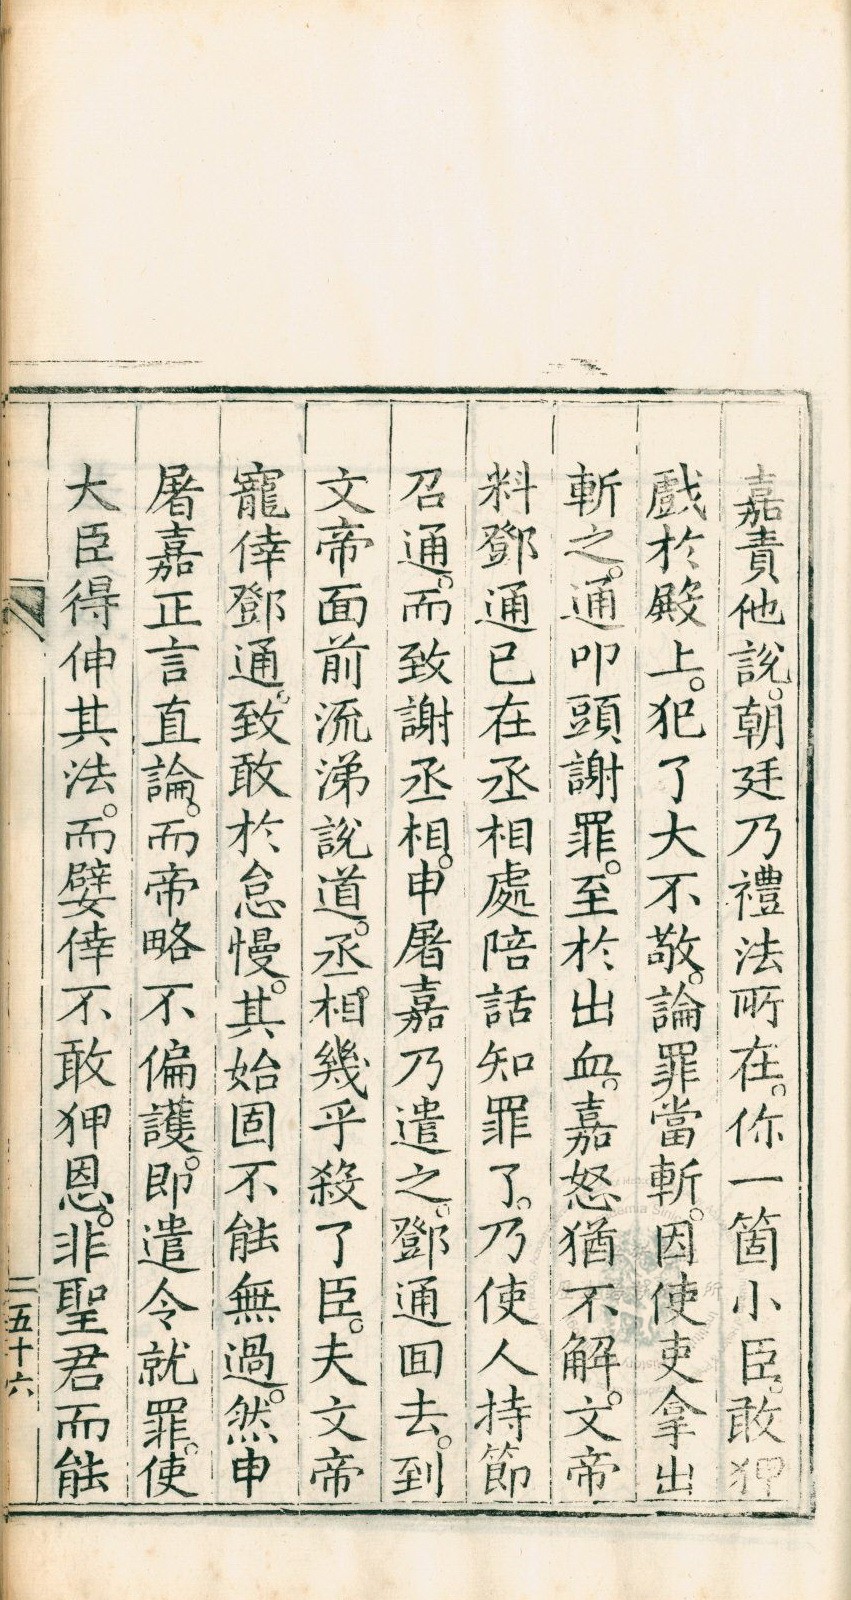 嘉責他說。朝廷乃禮法所在。你一箇小臣。敢狎
戲於殿上。犯了大不敬。論罪當斬。因使吏拿出
斬之。通叩頭謝罪。至於出血。嘉怒猶不解。文帝
料鄧通已在丞相處陪話知罪了。乃使人持節
召通。而致謝丞相。申屠嘉乃遣之。鄧通囬去。到
文帝面前流涕說道。丞相。幾乎殺了臣。夫文帝
寵倖鄧通。致敢於怠慢。其始固不能無過。然申
屠嘉正言直論。而帝略不偏護。即遣令就罪。使
大臣得伸其法。而嬖倖不敢狎恩。非聖君而能
二五十六